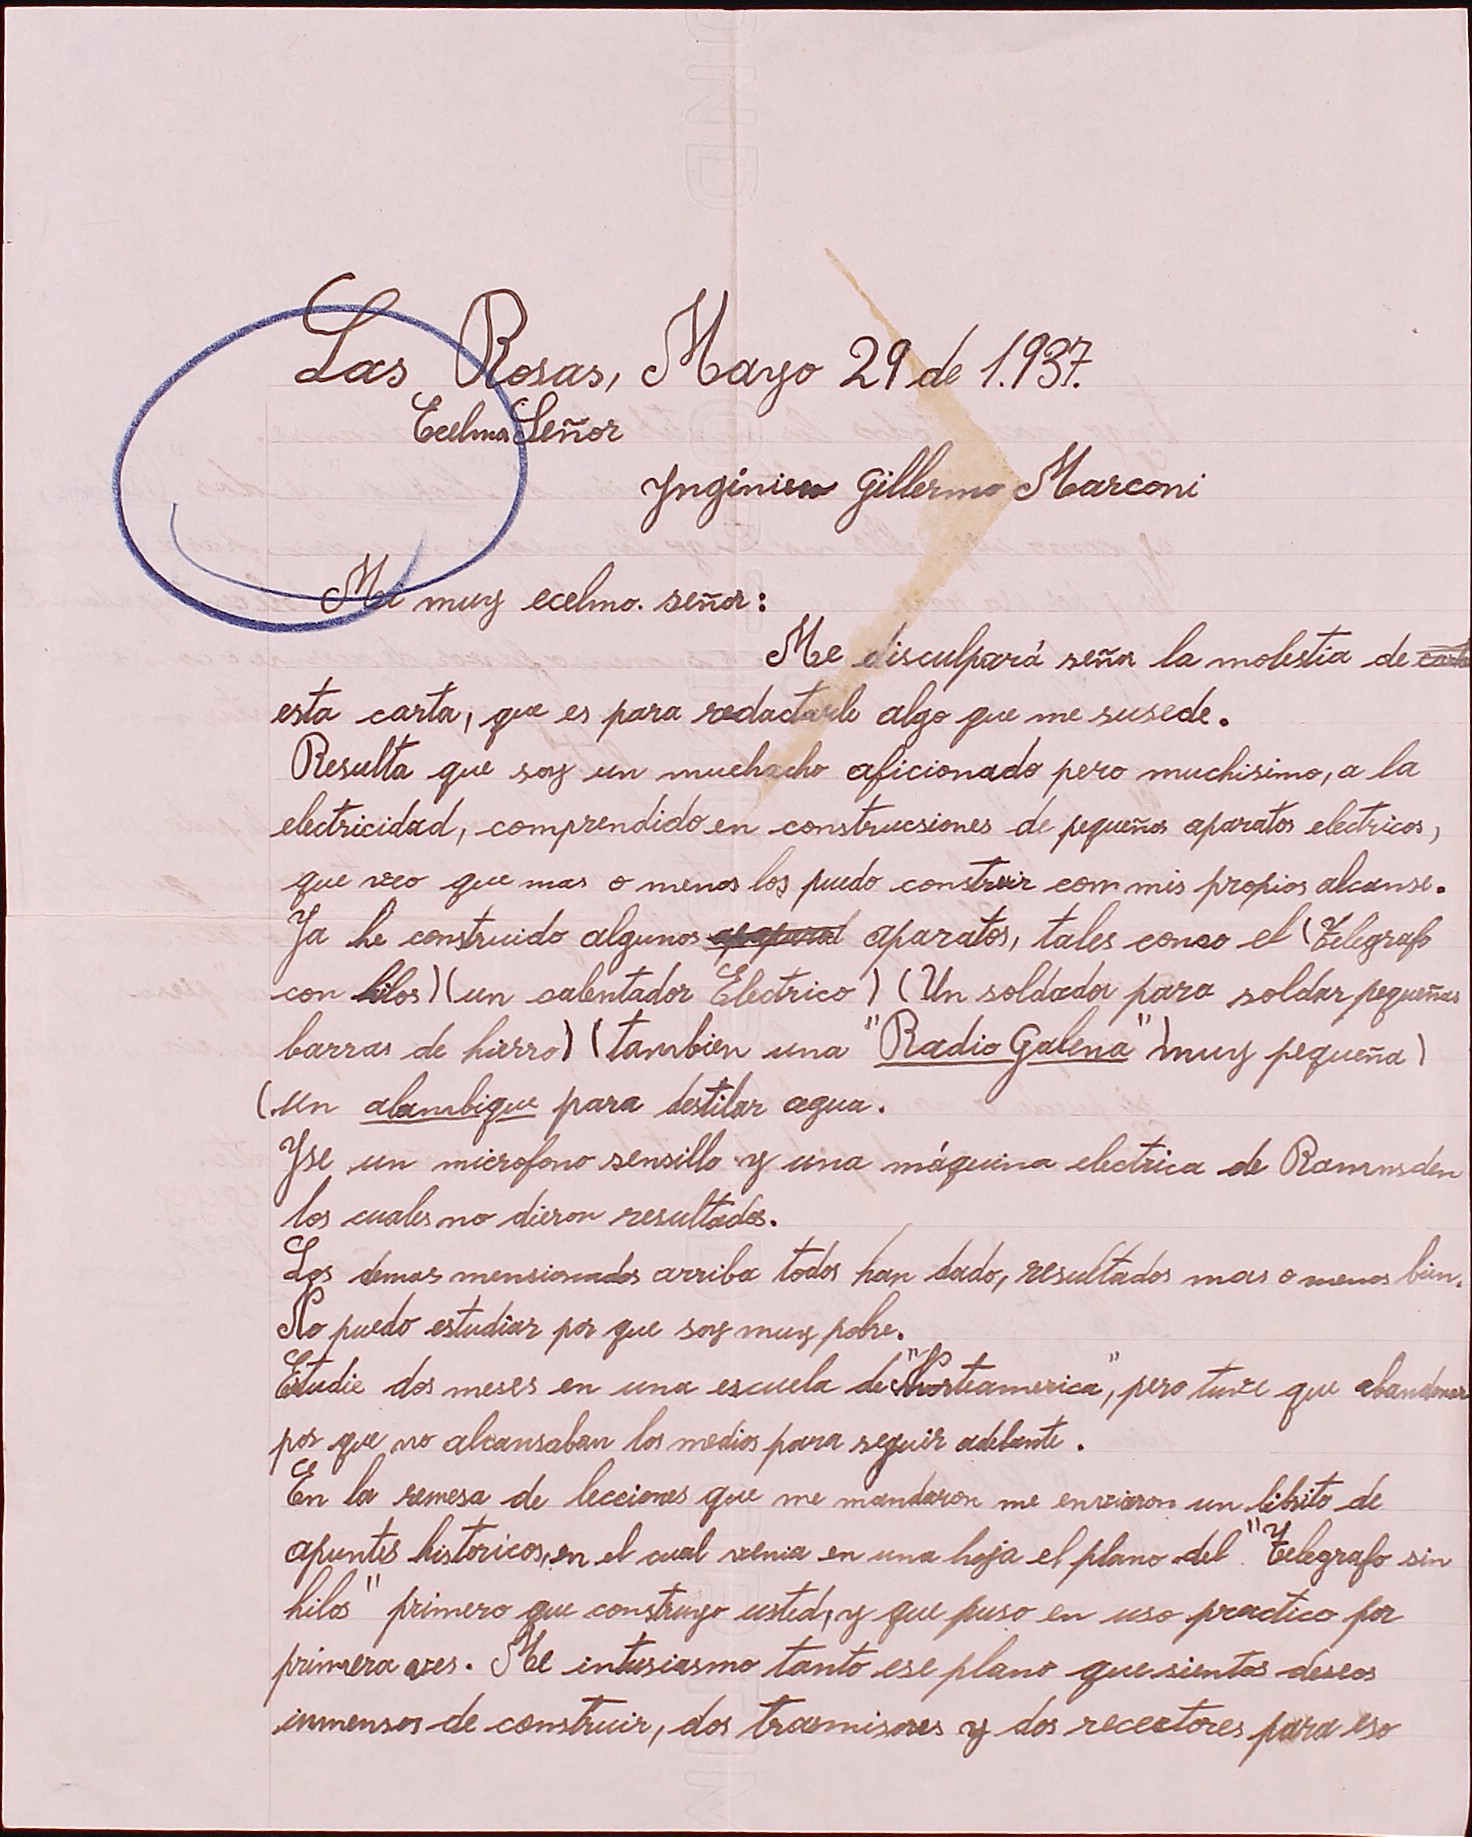 Las Rosas, Mayo 29 de 1.937.
Ecelmo Señor
Yngíniero Gillermo Marconi
Mi muy ecelmo. señor:
Me disculpará señor la molestia de
esta carta, que es para redactarle algo que me susede.
Resulta que soy un muchacho aficionado pero muchisimo, a la
electricidad, comprendido en construcsiones de pequeños aparatos electricos,
que veo que mas o menos los puedo construir com mis propios alcanse.
Ya he construido algunos aparatos, tales como el (Telegrafo
con hilos) (un calentador Electrico) (Un soldador para soldar pequeñas
barras de hierro) (tambien una "Radio Galena" muy pequeña)
(un alambique para destilar agua.
Yse un microfono sensillo y una máquina electrica de Ramnsden
los cuales no dieron resultados.
Los demas mensionados arriba todos han dado, resultados mas o menos bien.
No puedo estudiar por que soy muy pobre.
Estudie dos meses en una escuela de "Norteamerica", pero tuve que abandonar
por que no alcansaban los medios para seguir adelante.
En la remesa de lecciones que me mandaron me enviaron un librito de
apuntes historicos, en el cual venia en una hoja el plano del "Telegrafo sin
hilos" primero que construyo usted, y que puso en uso practico por
primera ves. Me intusiasmo tanto ese plano que sientos deseos
inmensos de construir, dos trasmisores y dos recectores para eso